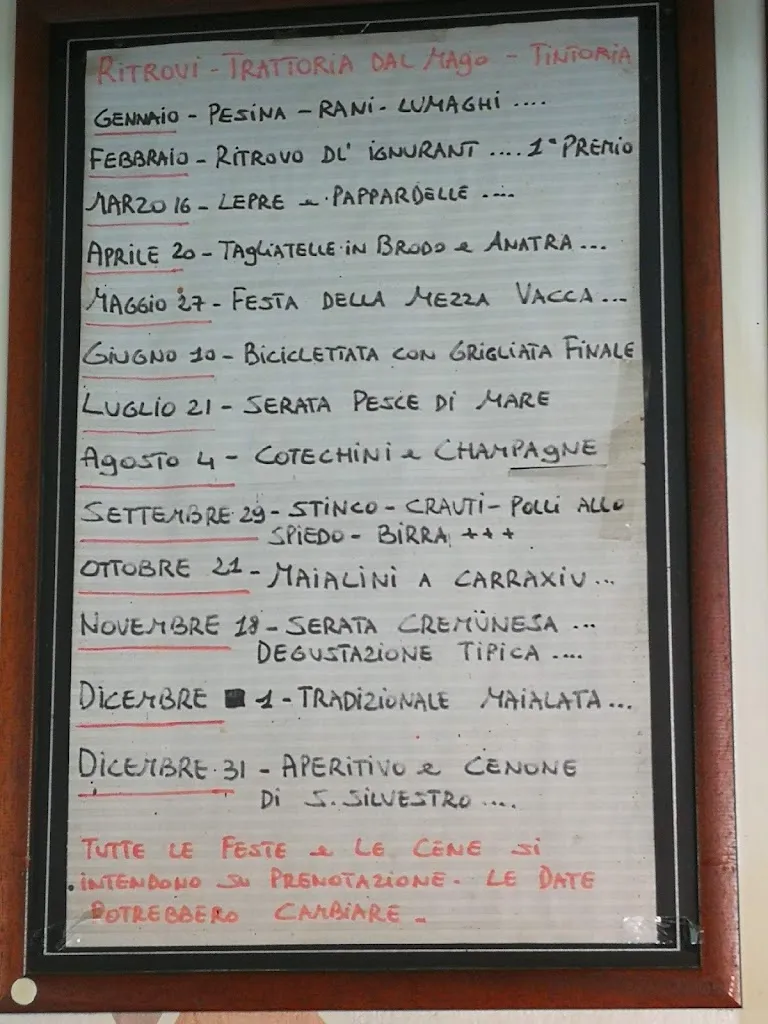 RITROVI - TRATTORIA DAL MAGO - TINTORIA
GENNAIO - PESINA - RANI - LUMAGHI ....
FEBBRAIO - RITROVO DL' IGNURANT .... 1° PREMIO
MARZO 16 - LEPRE e PAPPARDELLE ....
APRILE 20 - TAGLIATELLE IN BRODO e ANATRA ...
MAGGIO 27 - FESTA DELLA MEZZA VACCA ...
GIUGNO 10 - BICICLETTATA CON GRIGLIATA FINALE
LUGLIO 21 - SERATA PESCE DI MARE
AGOSTO 4 - COTECHINI e CHAMPAGNE
SETTEMBRE 29 - STINCO - CRAUTI - POLLI ALLO
SPIEDO - BIRRA +++
OTTOBRE 21 - MAIALINI A CARRAXIU ...
NOVEMBRE 18 - SERATA CREMÜNESA ...
DEGUSTAZIONE TIPICA ....
DICEMBRE 1 - TRADIZIONALE MAIALATA ...
DICEMBRE 31 - APERITIVO e CENONE
DI S. SILVESTRO ....
TUTTE LE FESTE e LE CENE SI
INTENDONO SU PRENOTAZIONE. LE DATE
POTREBBERO CAMBIARE -